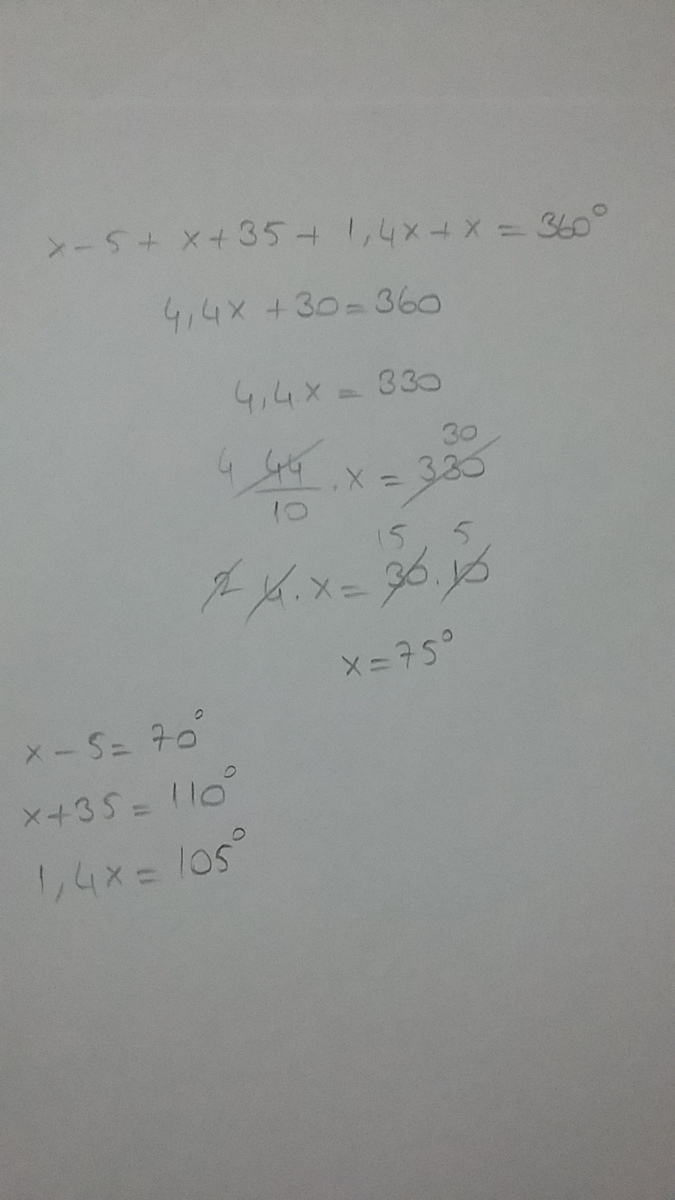 x-5+ x+35+ 1,4x+x = 360°
4,4x +30=360
4,4x = 330
30
4 44/10 . x = 330
15 5
2 4. x = 30. 10
x=75°
x-5= 70°
x+35= 110°
1,4x= 105°